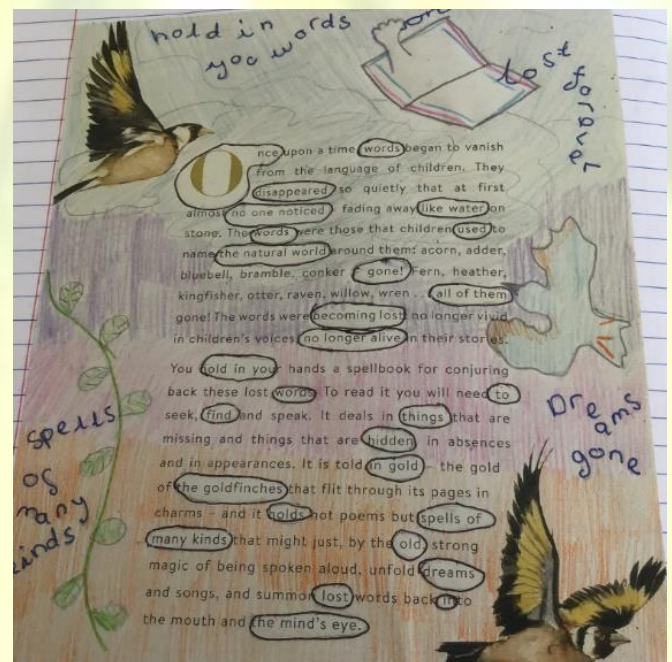 hold in
you words
on
lost forever
Once upon a time words began to vanish
from the language of children. They
disappeared so quietly that at first
almost no one noticed – fading away like water on
stone. The words were those that children used to
name the natural world around them: acorn, adder,
bluebell, bramble, conker – gone! Fern, heather,
kingfisher, otter, raven, willow, wren . . . all of them
gone! The words were becoming lost: no longer vivid
in children's voices, no longer alive in their stories.
You hold in your hands a spellbook for conjuring
back these lost words. To read it you will need to
seek, find and speak. It deals in things that are
missing and things that are hidden, in absences
and in appearances. It is told in gold – the gold
of the goldfinches that flit through its pages in
charms – and it holds not poems but spells of
many kinds that might just, by the old, strong
magic of being spoken aloud, unfold dreams
and songs, and summon lost words back into
the mouth and the mind's eye.
spells
of
many
kinds
Dreams
gone